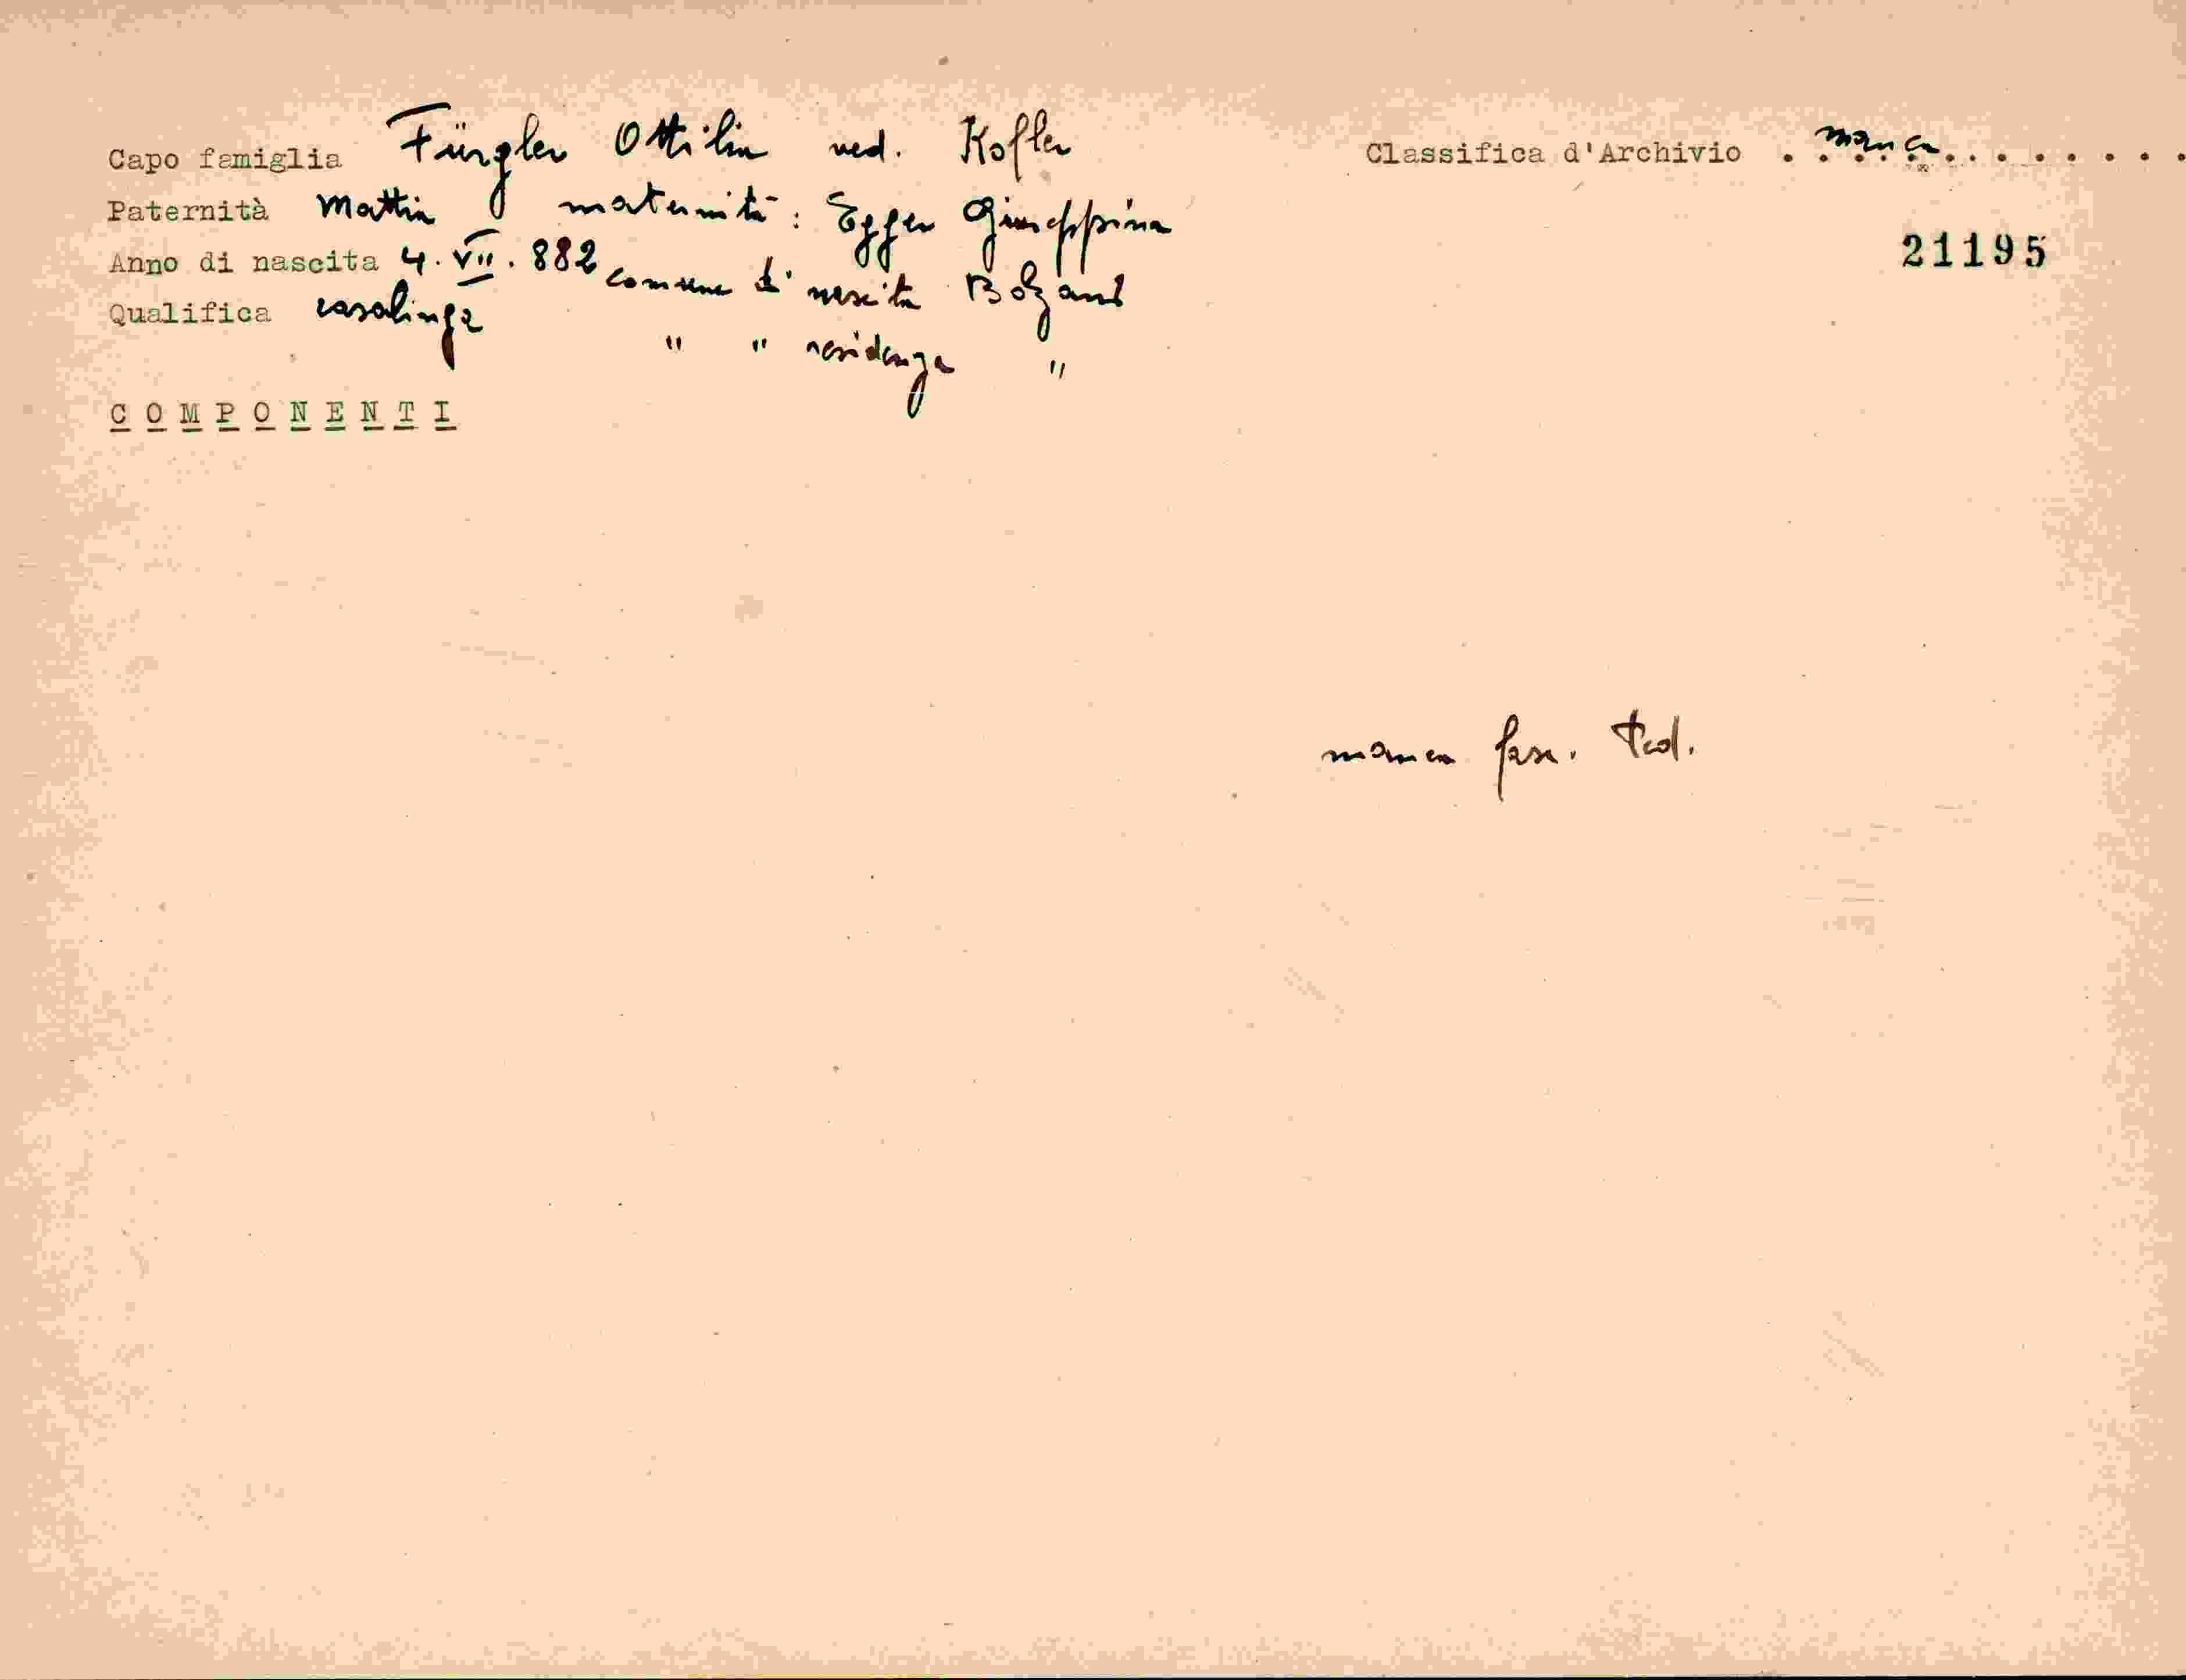 Capo famiglia Fürgler Ottilia ved. Kofler
Classifica d'Archivio . . manca . . . . . . .
Paternità Mattia maternità: Egger Giuseppina
21195
Anno di nascita 4. VII. 882 comune di nascita Bolzano
Qualifica casalinga
" " residenza "
COMPONENTI
manca fasc. ted.